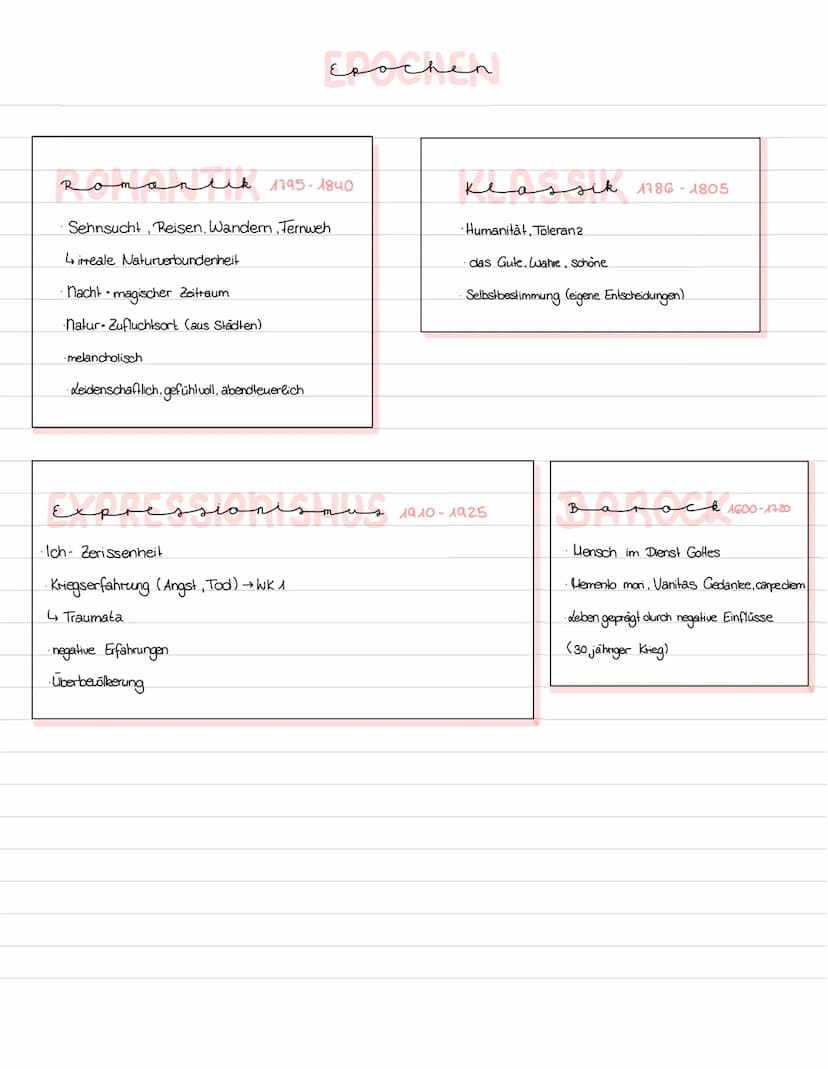 Epochen
Romantik 1795-1840
· Sehnsucht, Reisen, Wandern, Fernweh
↳ irreale Naturverbundenheit
· Nacht · magischer Zeitraum
· Natur · Zufluchtsort (aus Städten)
· melancholisch
· Leidenschaftlich, gefühlvoll, abendteuerlich
Klassik 1786-1805
· Humanität, Toleranz
· das Gute, Wahre, schöne
· Selbstbestimmung (eigene Entscheidungen)
Expressionismus 1910-1925
· Ich- Zerissenheit
· Kriegserfahrung (Angst, Tod) → WK 1
↳ Traumata
· negative Erfahrungen
· Überbevölkerung
Barock 1600-1720
· Mensch im Dienst Gottes
· Memento mori, Vanitas Gedanke, carpe diem
· Leben geprägt durch negative Einflüsse
(30 jähriger Krieg)